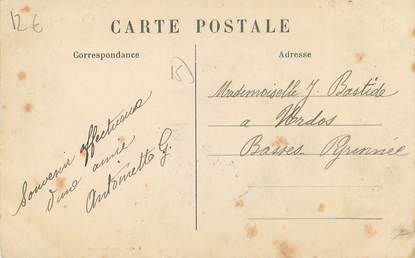 12€
CARTE POSTALE
Correspondance
Adresse
15
Souvenir affectueux
d'une amie
Antoinette G.
Mademoiselle J. Bastide
a Urdos
Basses Pyrennée